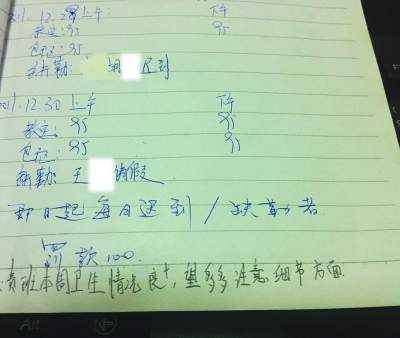 2011.12.29 上午: 下午
教室: 95 95
包区: 95
考勤: 迟到
2011.12.30 上午 下午
教室: 95 95
包区: 95 95
考勤: 王 请假
即日起每日迟到/缺勤者
罚款100.
贵班本周卫生情况良+,望多多注意细节方面.
Alt